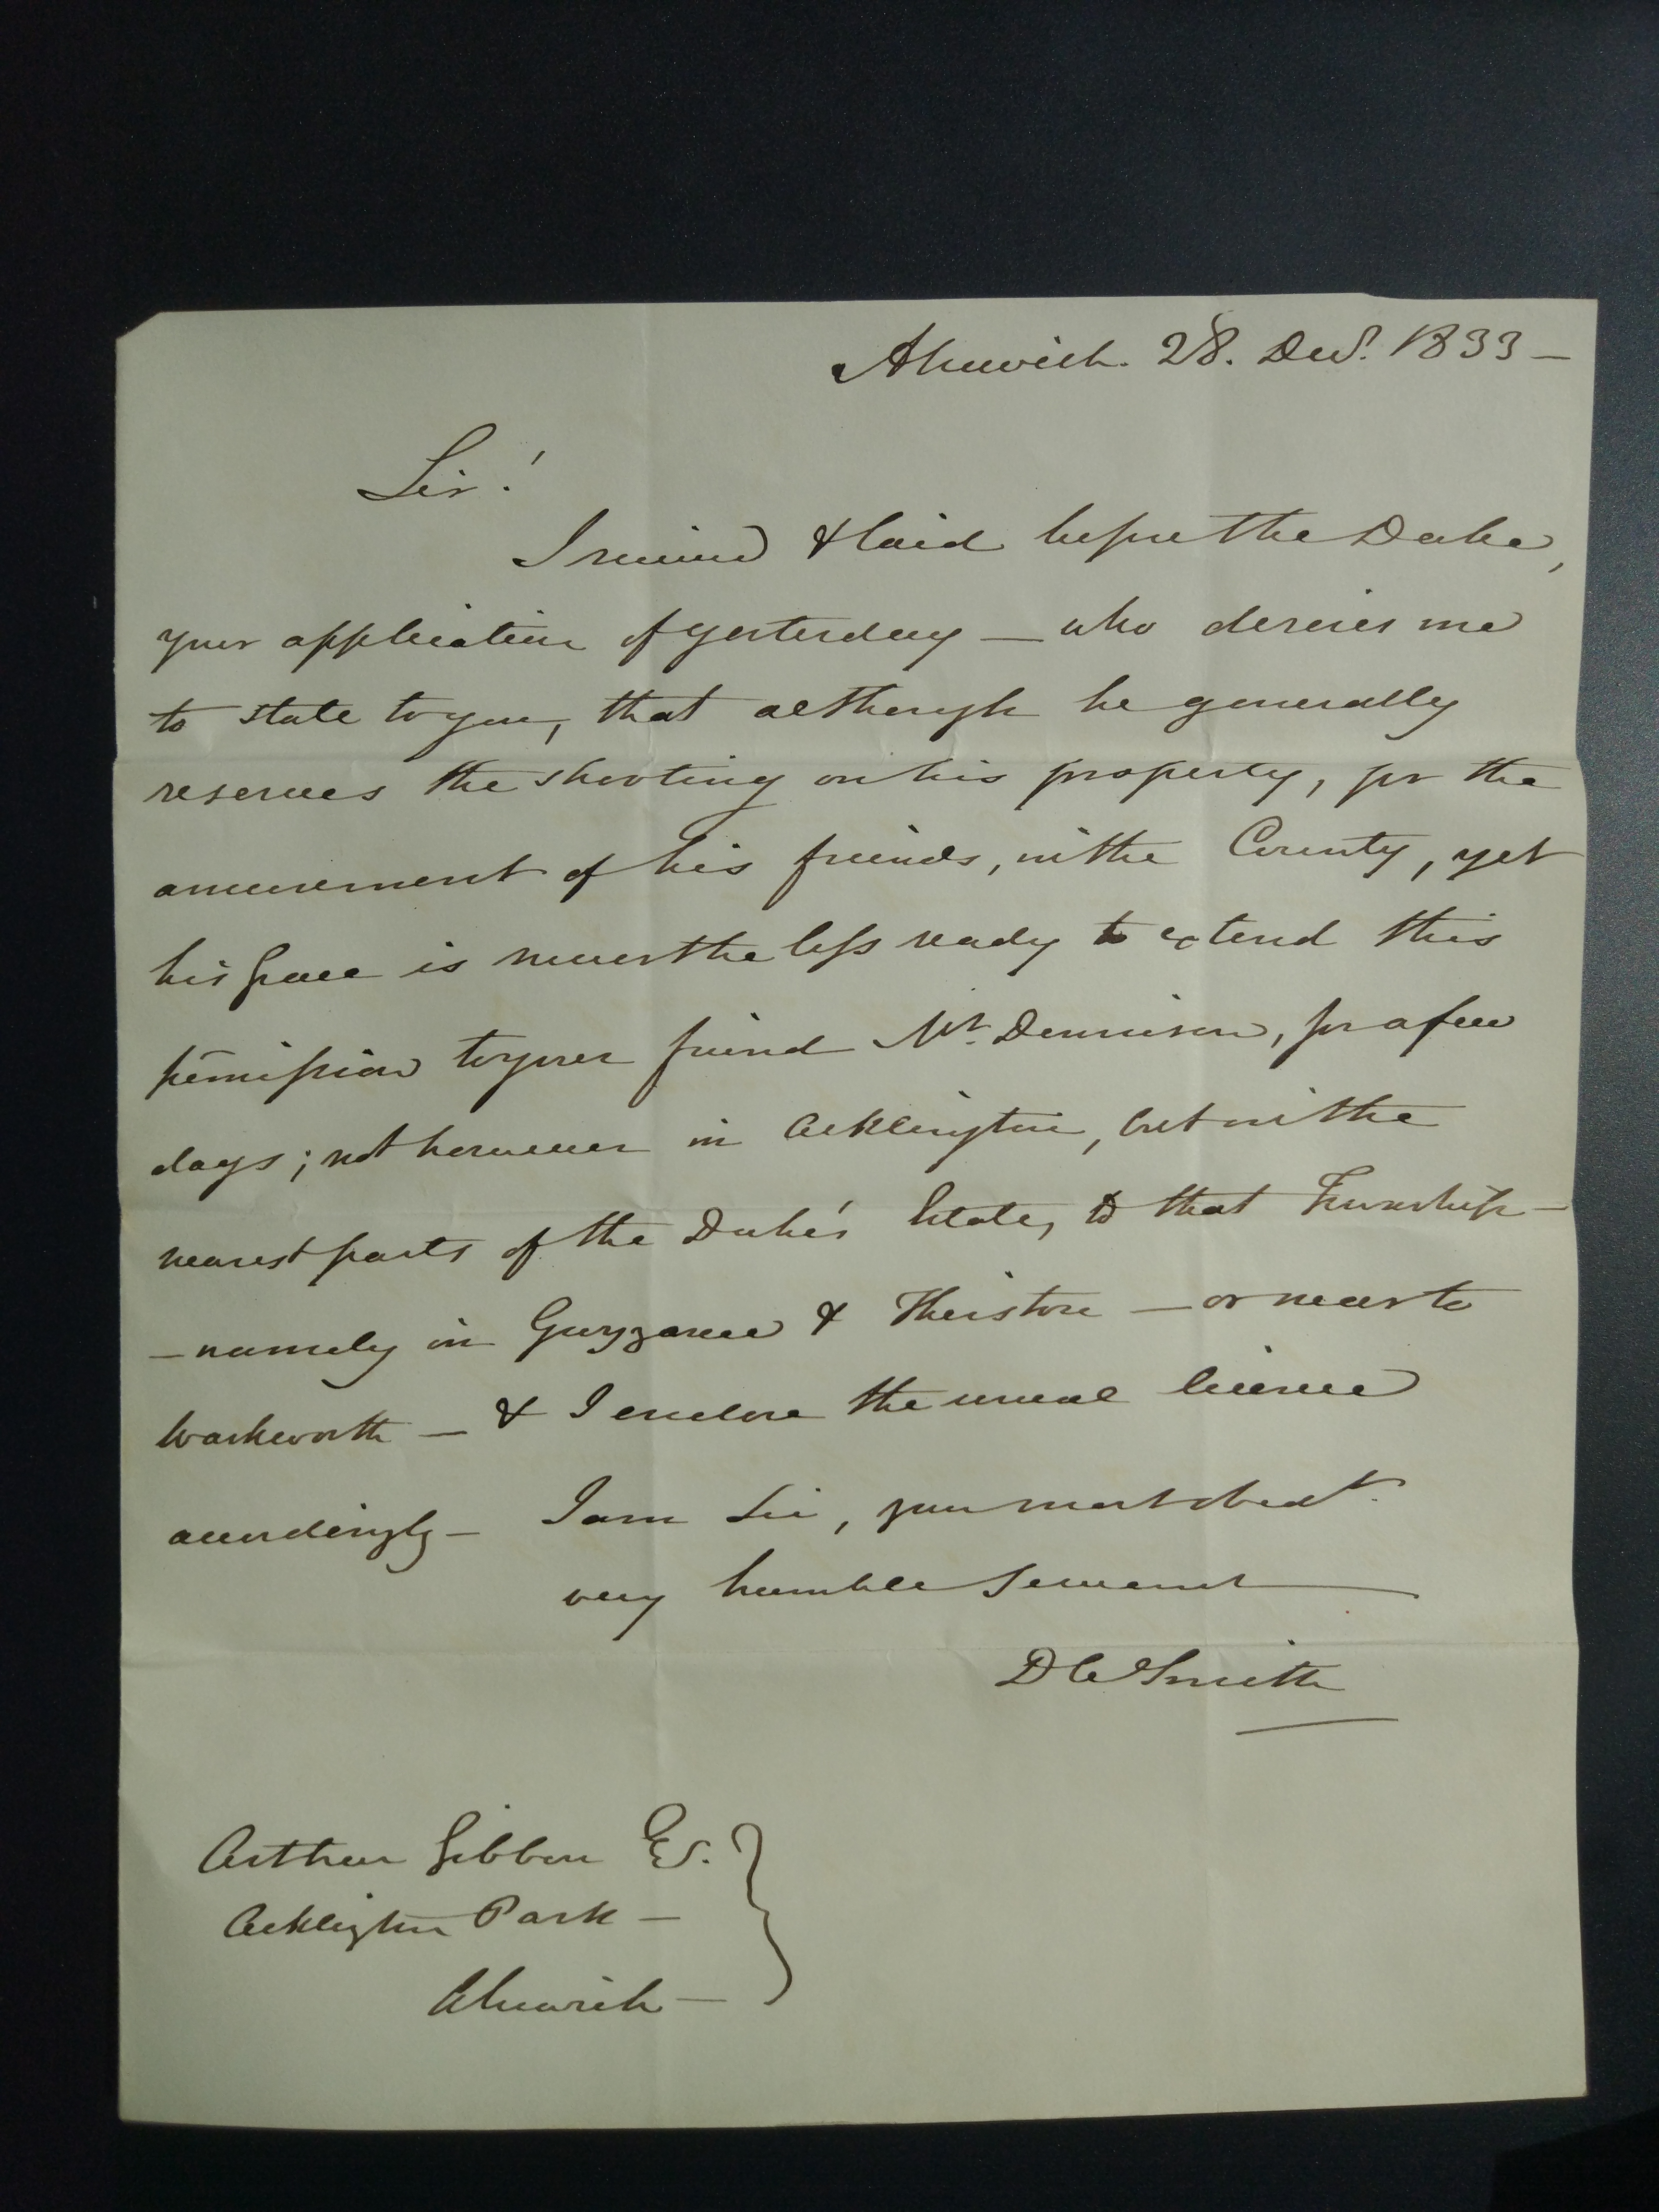 Alnwick. 28. Decr. 1833 –
Sir!
I received & laid before the Duke,
your application of yesterday — who desires me
to state to you, that although he generally
reserves the shooting on his property, for the
amusement of his friends, in the County, yet
his Grace is never the less ready to extend this
permission to your friend Mr. Dennison, for a few
days; not however in Acklington, but in the
nearest parts of the Duke's Estate, to that Township –
– namely in Guyzance & Sheistone – or near to
Warkworth – & I enclose the usual licence
accordingly – I am Sir, your most obedt.
very humble Servant
D W Smith
Arthur Gibbon Es.
Acklington Park –
Alnwick –